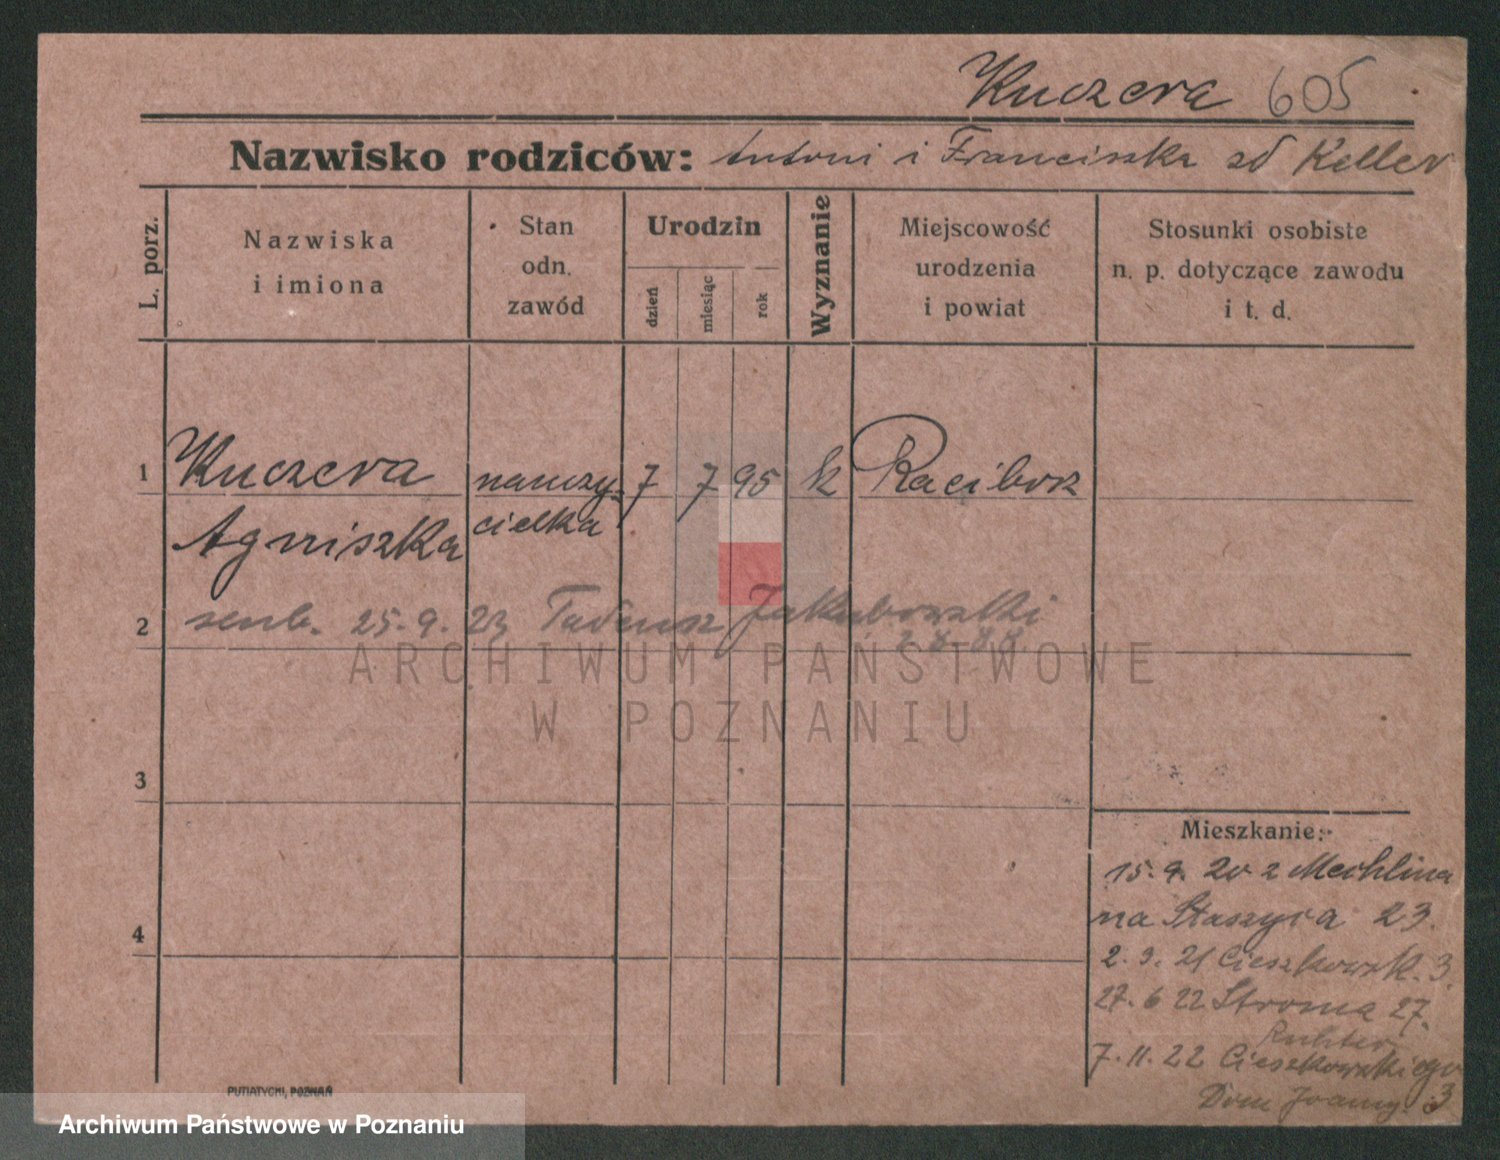 Kuczera 605
Nazwisko rodziców: Antoni i Franciszka zd Keller
L. porz.
Nazwiska
i imiona
Stan
odn.
zawód
Urodzin
dzień
miesiąc
rok
Wyznanie
Miejscowość
urodzenia
i powiat
Stosunki osobiste
n. p. dotyczące zawodu
i t. d.
1 Kuczera nauczy= 7 7 95 k Racibor
Agniszka cielka
2 25.9.23 Tadeusz Jakubowski
3
4
Mieszkanie:
15.9. 20 z Mechlina
na Staszyca 23.
2.9.21 Cieszkowsk. 3.
27.6 22 Stroma 27.
7.11.22 Cieszkowskiego
Dom 3
PUTIATYCKI, POZNAŃ
ARCHIWUM PAŃSTWOWE
W POZNANIU
Archiwum Państwowe w Poznaniu